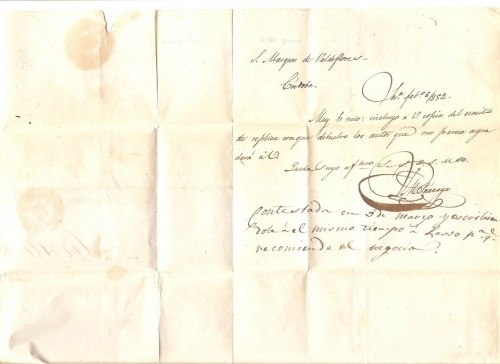 S. Marques de Valdeflores.
Córdoba.
febº 6/852.
Muy Sr mio: incluyo á V. copia del escrito
de replica conque debuelvo los autos que me parece agra
dará á V.
Queda suyo afmo S. S. Q. S. M. B.
Contestada en 3 de Marzo y escribien
dole á el mismo tiempo á Lasso pª q.e
recomiende el negocio.